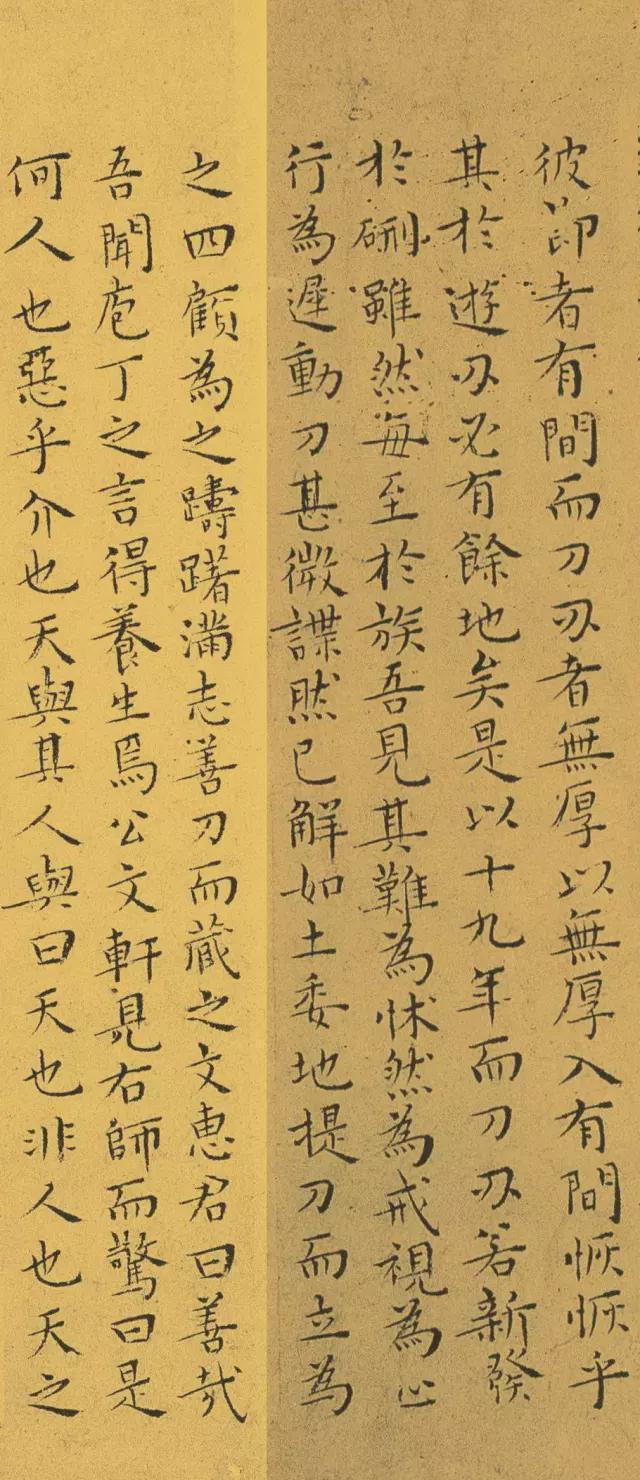 彼節者有間而刀刃者無厚以無厚入有間恢恢乎
其於遊刃必有餘地矣是以十九年而刀刃若新發
於硎雖然每至於族吾見其難為怵然為戒視為止
行為遲動刀甚微諜然已解如土委地提刀而立為
之四顧為之躊躇滿志善刀而藏之文惠君曰善哉
吾聞庖丁之言得養生焉公文軒見右師而驚曰是
何人也惡乎介也天與其人與曰天也非人也天之